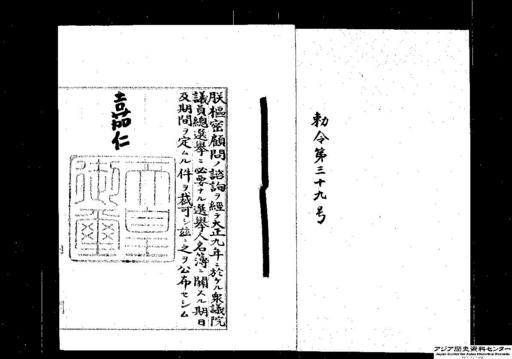 勅令第三十九号
朕樞密顧問ノ諮詢ヲ經テ大正九年ニ於ケル衆議院
議員總選擧ニ必要ナル選擧人名簿ニ關スル期日
及期間ヲ定ムル件ヲ裁可シ茲ニ之ヲ公布セシム
嘉仁
天皇
御璽
アジア歴史資料センター
Japan Center for Asian Historical Records